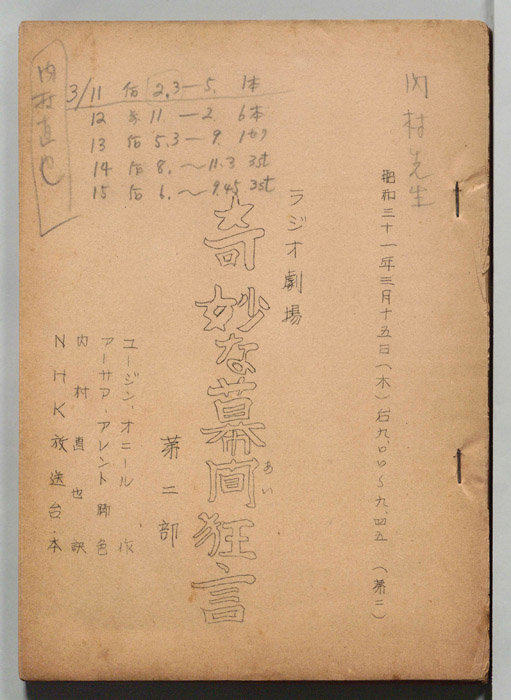 内村先生
昭和三十一年三月十五日(木)后九、〇〇〜九、四五(第二)
ラジオ劇場
奇妙な幕間狂言
あい
第二部
ユージン・オニール 作
アーサア・アレント 脚色
内村直也 訳
NHK放送台本
3/11 后 2.3—5. 1本
12 11.—2. 6本
13 后 5.3—9.
14 后 8.〜11.3 3st
15 后 6.〜9.45 3st
内村直也